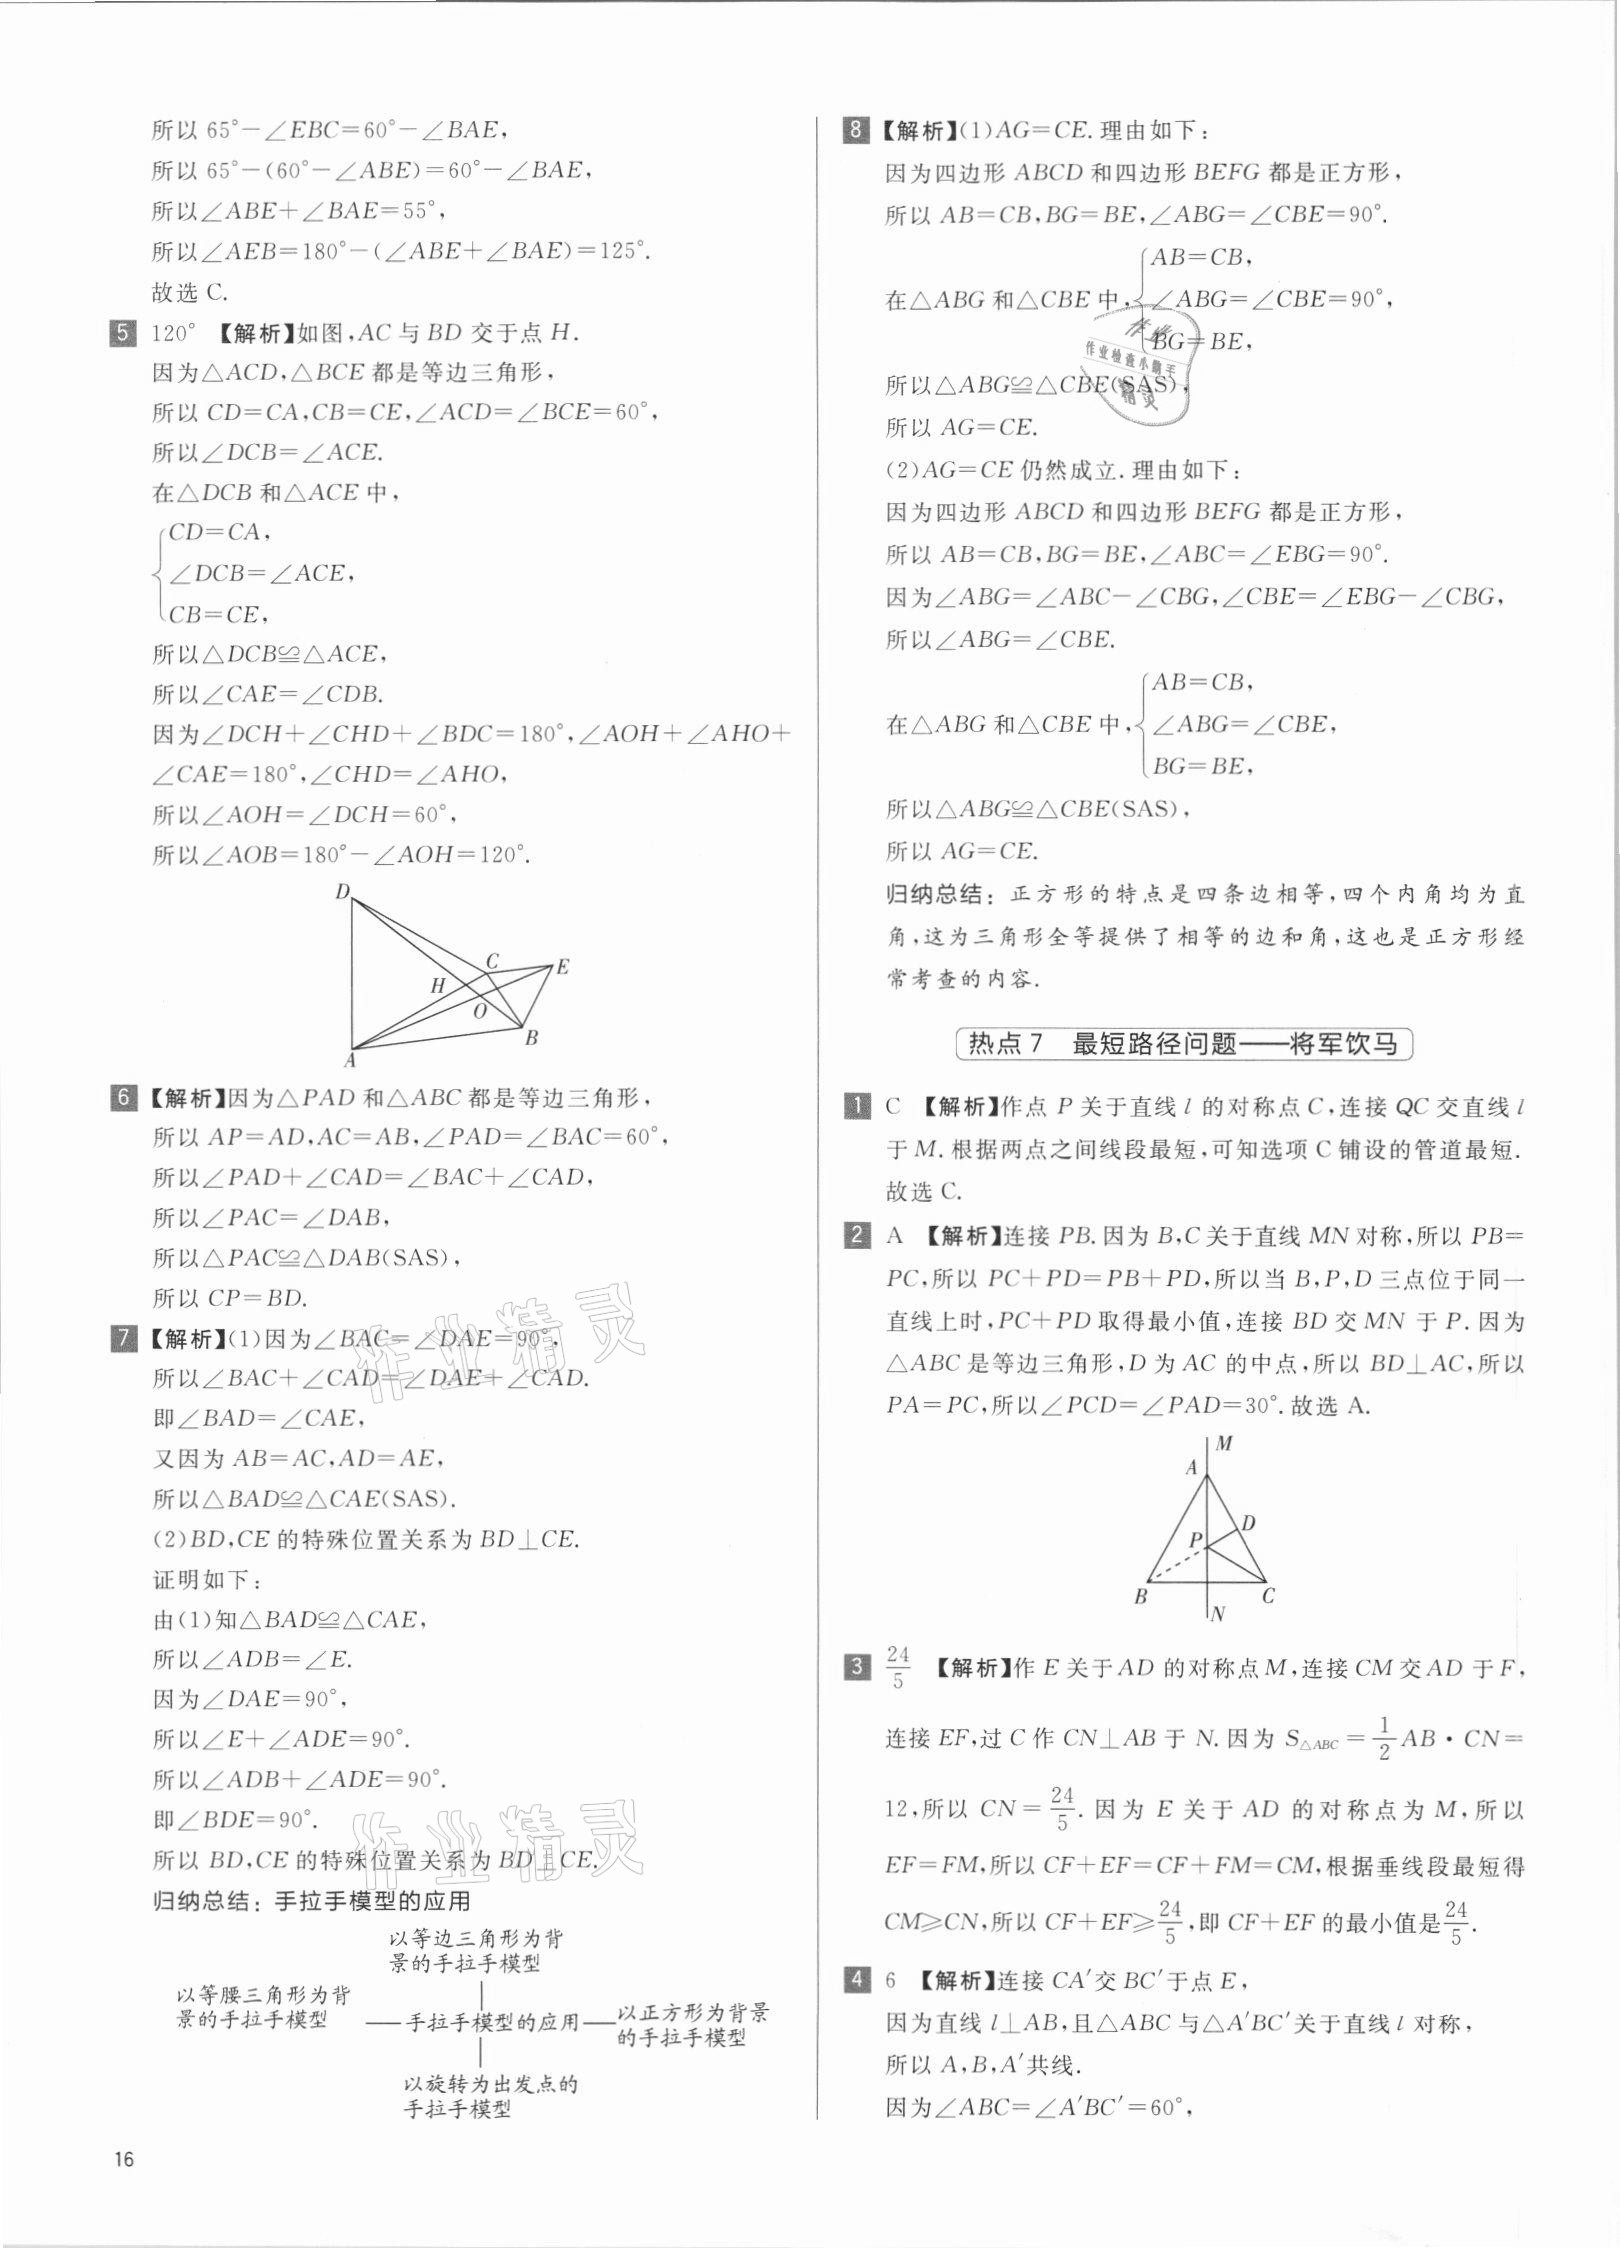 所以 65°－∠EBC＝60°－∠BAE，
所以 65°－(60°－∠ABE)＝60°－∠BAE，
所以∠ABE＋∠BAE＝55°，
所以∠AEB＝180°－(∠ABE＋∠BAE)＝125°.
故选 C.
5 120° 【解析】如图，AC 与 BD 交于点 H.
因为△ACD，△BCE 都是等边三角形，
所以 CD＝CA，CB＝CE，∠ACD＝∠BCE＝60°，
所以∠DCB＝∠ACE.
在△DCB 和△ACE 中，
CD＝CA，
∠DCB＝∠ACE，
CB＝CE，
所以△DCB≌△ACE，
所以∠CAE＝∠CDB.
因为∠DCH＋∠CHD＋∠BDC＝180°，∠AOH＋∠AHO＋
∠CAE＝180°，∠CHD＝∠AHO，
所以∠AOH＝∠DCH＝60°，
所以∠AOB＝180°－∠AOH＝120°.
D
C
E
H
O
B
A
6 【解析】因为△PAD 和△ABC 都是等边三角形，
所以 AP＝AD，AC＝AB，∠PAD＝∠BAC＝60°，
所以∠PAD＋∠CAD＝∠BAC＋∠CAD，
所以∠PAC＝∠DAB，
所以△PAC≌△DAB(SAS)，
所以 CP＝BD.
7 【解析】(1)因为∠BAC＝∠DAE＝90°，
所以∠BAC＋∠CAD＝∠DAE＋∠CAD.
即∠BAD＝∠CAE，
又因为 AB＝AC，AD＝AE，
所以△BAD≌△CAE(SAS).
(2)BD，CE 的特殊位置关系为 BD⊥CE.
证明如下：
由(1)知△BAD≌△CAE，
所以∠ADB＝∠E.
因为∠DAE＝90°，
所以∠E＋∠ADE＝90°.
所以∠ADB＋∠ADE＝90°.
即∠BDE＝90°.
所以 BD，CE 的特殊位置关系为 BD⊥CE.
归纳总结：手拉手模型的应用
以等边三角形为背
景的手拉手模型
以等腰三角形为背
景的手拉手模型
手拉手模型的应用
以正方形为背景
的手拉手模型
以旋转为出发点的
手拉手模型
作业精灵
作业精灵
16
8 【解析】(1)AG＝CE.理由如下：
因为四边形 ABCD 和四边形 BEFG 都是正方形，
所以 AB＝CB，BG＝BE，∠ABG＝∠CBE＝90°.
AB＝CB，
在△ABG 和△CBE 中，∠ABG＝∠CBE＝90°，
BG＝BE，
所以△ABG≌△CBE(SAS)，
所以 AG＝CE.
(2)AG＝CE 仍然成立.理由如下：
因为四边形 ABCD 和四边形 BEFG 都是正方形，
所以 AB＝CB，BG＝BE，∠ABC＝∠EBG＝90°.
因为∠ABG＝∠ABC－∠CBG，∠CBE＝∠EBG－∠CBG，
所以∠ABG＝∠CBE.
AB＝CB，
在△ABG 和△CBE 中，∠ABG＝∠CBE，
BG＝BE，
所以△ABG≌△CBE(SAS)，
所以 AG＝CE.
归纳总结：正方形的特点是四条边相等，四个内角均为直
角，这为三角形全等提供了相等的边和角，这也是正方形经
常考查的内容.
作业
作业检查小助手
精灵
热点7 最短路径问题——将军饮马
1 C 【解析】作点 P 关于直线 l 的对称点 C，连接 QC 交直线 l
于 M.根据两点之间线段最短，可知选项 C 铺设的管道最短.
故选 C.
2 A 【解析】连接 PB.因为 B，C 关于直线 MN 对称，所以 PB＝
PC，所以 PC＋PD＝PB＋PD，所以当 B，P，D 三点位于同一
直线上时，PC＋PD 取得最小值，连接 BD 交 MN 于 P.因为
△ABC 是等边三角形，D 为 AC 的中点，所以 BD⊥AC，所以
PA＝PC，所以∠PCD＝∠PAD＝30°.故选 A.
M
A
D
P
B
C
N
3 24/5 【解析】作 E 关于 AD 的对称点 M，连接 CM 交 AD 于 F，
连接 EF，过 C 作 CN⊥AB 于 N.因为 S△ABC＝1/2 AB·CN＝
12，所以 CN＝24/5.因为 E 关于 AD 的对称点为 M，所以
EF＝FM，所以 CF＋EF＝CF＋FM＝CM，根据垂线段最短得
CM≥CN，所以 CF＋EF≥24/5，即 CF＋EF 的最小值是24/5.
4 6 【解析】连接 CA′交 BC′于点 E，
因为直线 l⊥AB，且△ABC 与△A′BC′关于直线 l 对称，
所以 A，B，A′共线.
因为∠ABC＝∠A′BC′＝60°，